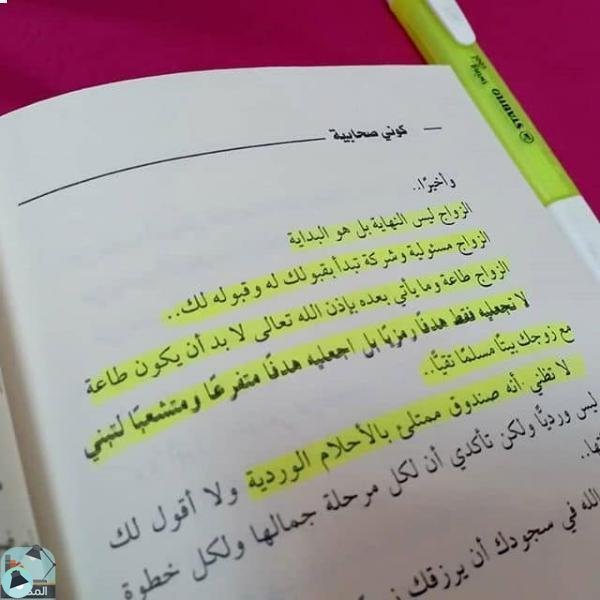 كوني صحابية
وأخيرًا..
الزواج ليس النهاية بل هو البداية
الزواج مسئولية وشركة تبدأ بقبولك له وقبوله لك..
الزواج طاعة وما يأتي بعده بإذن الله تعالى لا بد أن يكون طاعة
لا تجعليه فقط هدفًا رمزيًا بل اجعليه هدفًا متفرعًا ومتشعبًا لتبني
مع زوجك بيتًا مسلمًا تقيًّا..
لا تظني .أنه صندوق ممتلئ بالأحلام الوردية ولا أقول لك
ليس ورديًّا ولكن تأكدي أن لكل مرحلة جمالها ولكل خطوة
الله في سجودك أن يرزقك
STABILO swing cool